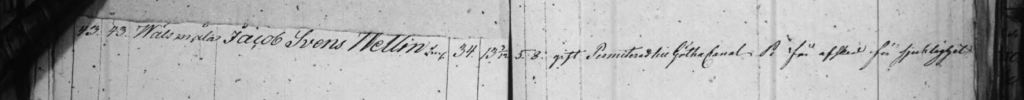 43. 43. Wäls måla Jacob Svens Wetlin 34. 13 5. 8. gift Permitterad til Götha Canal. B. får afsked för sjuklighet